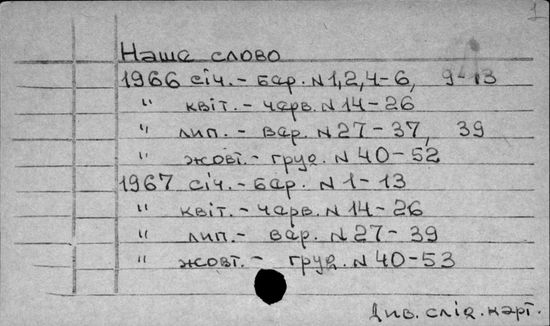 1
Наше слово
1966 січ.- бар. N1,2,4-6, 9-13
" квіт.- черв. N14-26
" лип.- вар. N27-37, 39
" жовт.- груд. N40-52
1967 січ.- бар. N1-13
" квіт.- черв. N14-26
" лип.- вар. N27-39
" жовт.- груд. N40-53
Див. слід. карт.